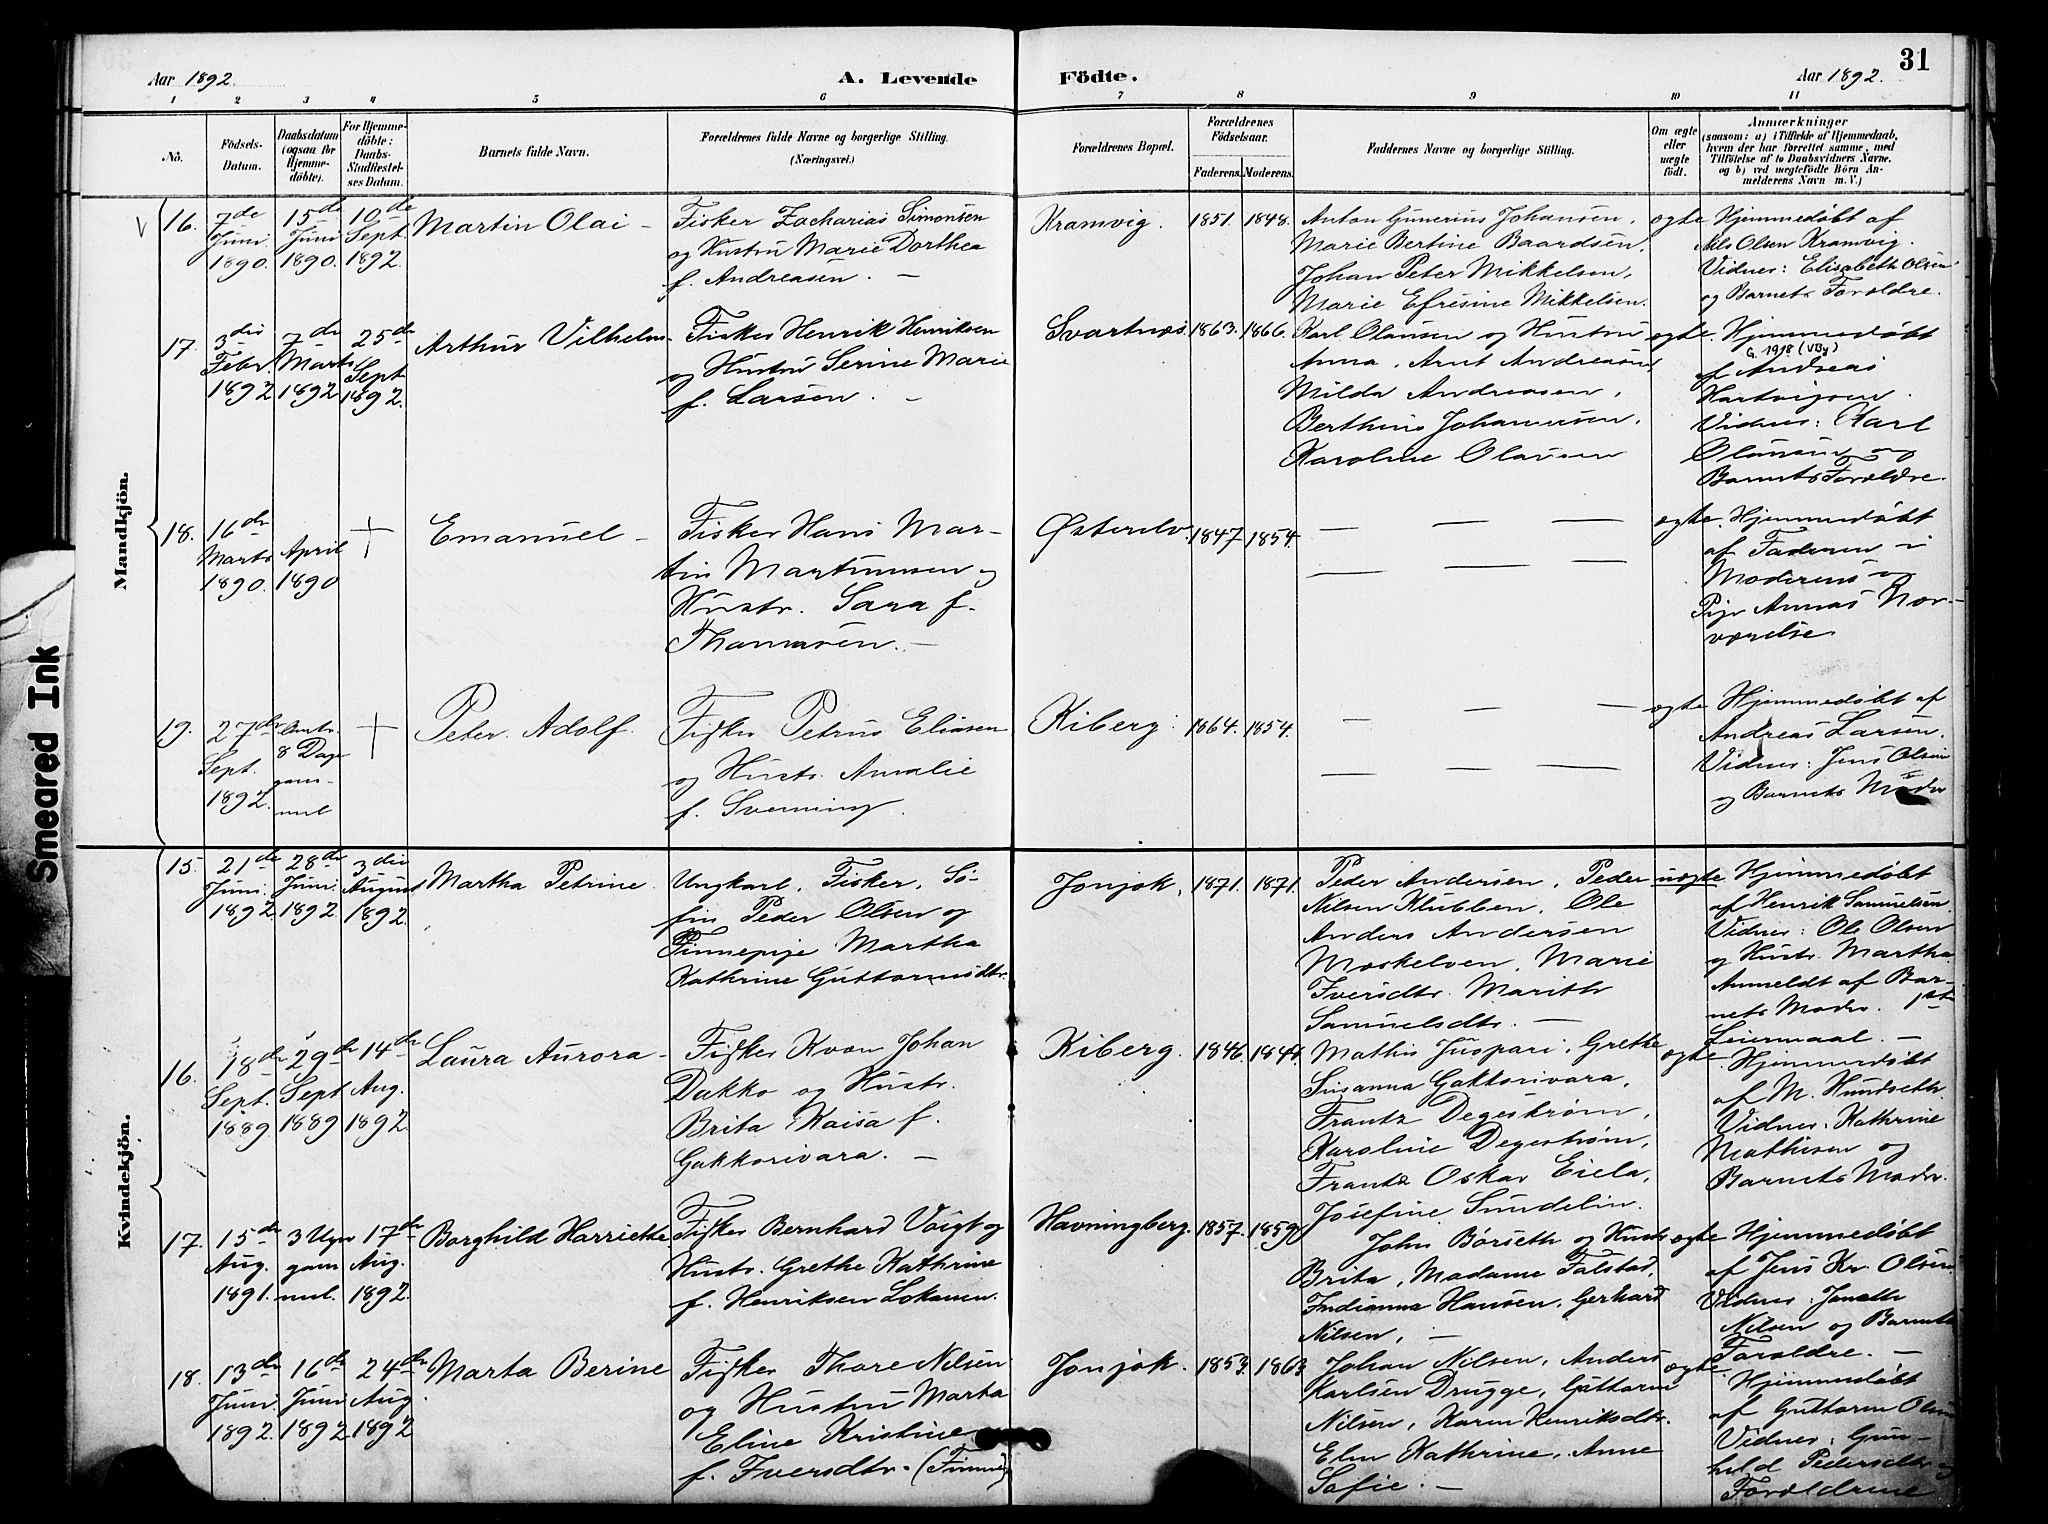 31
Aar 1892.
A. Levende
Födte.
Aar 1892.
1 2 3 4 5 6 7 8 9 10 11
No.
Födsels-
Datum.
Daabsdatum
(ogsaa for
Hjemme-
döbte).
For Hjemme-
döbte:
Daabs-
Stadfæstel-
ses Datum.
Barnets fulde Navn.
Forældrenes fulde Navne og borgerlige Stilling.
(Næringsvei.)
Forældrenes Bopæl.
Forældrenes
Födselsaar.
Faderens. Moderens.
Faddernes Navne og borgerlige Stilling.
Om ægte
eller
uægte
födt.
Anmærkninger
(saasom: a) i Tilfælde af Hjemmedaab,
hvem der har forrettet samme, med
Tilföielse af to Daabsvidners Navne.
og b) ved uægtefödte Börn An-
melderens Navn m. V.)
Mandkjön.
16.
7de
Juni
1890.
15de
Juni
1890.
10de
Sept.
1892.
Martin Olai –
Fisker Zacharias Simonsen
og Hustru Marie Dorthea
f. Andreasen. –
Kramvig.
1851.
1848.
Anton Gunerius Johansen,
Marie Bertine Baardsen,
Johan Peter Mikkelsen,
Marie Efresine Mikkelsen.
ægte
Hjemmedøbt af
Nils Olsen Kramvig.
Vidner: Elisabeth Olsen
og Barnets Forældre.
17.
3die
Febr.
1892
7de
Marts
1892
25de
Sept
1892.
Arthur Vilhelm
Fisker Henrik Henriksen
og Hustru Serine Marie
f. Larsen. –
Svartnæs
1863.
1866.
Karl Olausen og Hustru
Anna, Arnt Andreasen
Milda Andreasen,
Berthine Johannesen,
Karoline Olausen
ægte.
Hjemmedøbt
G. 1918 (VBy)
af Andreas
Hartvigsen.
Vidner: Karl
Olausen og
Barnets Forældre.
18.
16de
Marts
1890.
April
1890
+
Emanuel –
Fisker Hans Mar-
tin Martinusen og
Hustr. Sara f.
Thomasen. –
Østerelv.
1847
1854.
ægte.
Hjemmedøbt
af Faderen i
Moderens og
Pige Annas Nær-
værelse
19.
27de
Sept.
1892.
8 Dage
gam-
mel
+
Peter Adolf.
Fisker Petrus Eliasen
og Hustr. Amalie
f. Svenning.
Kiberg.
1864.
1854.
ægte
Hjemmedøbt af
Andreas Larsen.
Vidner: Jens Olsen
og Barnets Moder
Kvindekjön.
15.
21de
Juni.
1892
28de
Juni.
1892
3die
August
1892
Martha Petrine
Ungkarl, Fisker, Sø-
fin Peder Olsen og
Finnepige Martha
Kathrine Guttormsdtr.
Jonjok.
1871.
1871.
Peder Andersen, Peder
Nilsen Klubben, Ole
Anders Andersen
Moskelven, Marie
Iversdtr. Marith
Samuelsdtr. –
uægte
Hjemmedøbt
af Henrik Samuelsen
Vidner: Ole Olsen
og Hustr. Martha
Anmeldt af Bar-
nets Moder. 1ste
Leiermaal. –
16.
18de
Sept.
1889.
29de
Sept
1889
14de
Aug.
1892.
Laura Aurora –
Fisker Kvæn Johan
Dakko og Hustr.
Brita Kaisa f.
Gakkorivara. –
Kiberg.
1846.
Mathis Juspari, Grethe
Susanna Gakkorivara,
Frantz Degerstrøm,
Karoline Degerstrøm,
Frantz Oskar Eiela,
Josefine Sundelin.
ægte
Hjemmedøbt
af M. Hundseth
Vidner. Kathrine
Mathisen og
Barnets Moder.
17.
15de
Aug.
1891.
3 Uger
gam
mel.
17de
Aug.
1892.
Borghild Harriette
Fisker Bernhard Voigt og
Hustr. Grethe Kathrine
f. Henriksen Lokanen.
Havningberg.
1857.
1859
John Børseth og Hustr
Brita, Madame Falstad,
Indianna Hansen, Gerhard
Nilsen, –
ægte
Hjemmedøbt
af Jens Kr. Olsen
Vidner.
Nilsen og Barnets
Forældre. –
18.
13de
Juni.
1892.
16de
Juni
1892
24de
Aug.
1892
Marta Berine
Fisker Thore Nilsen
og Hustru Marta
Eline Kristine
f. Iversdtr. – (Finner)
Jonjok.
1853.
1863
Johan Nilsen, Anders
Karlsen Drugge, Guttorm
Nilsen, Karen Henriksdtr.
Elen Kathrine, Anne
Sofie. –
ægte
Hjemmedøbt
af Guttorm Olsen
Vidner: Gun-
hild Pedersdtr og
Forældrene
Smeared Ink